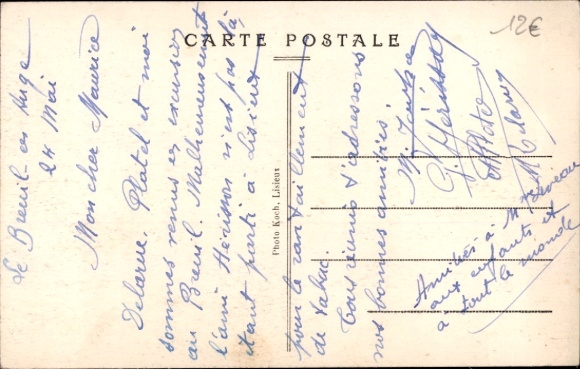 CARTE POSTALE
12€
Le Breuil-en-Auge
24 Mai
Mon cher Maurice
Delarue, Platel et moi
sommes venus en excursion
au Breuil. Malheureusement
l'ami Hérisson n'est pas là,
étant parti à Lisieux
pour le ravitaillement
de tabac.
Tous réunis t'adressons
nos bonnes amitiés.
Photo Koch, Lisieux
Amitiés à M
aux enfants et
à tout le monde